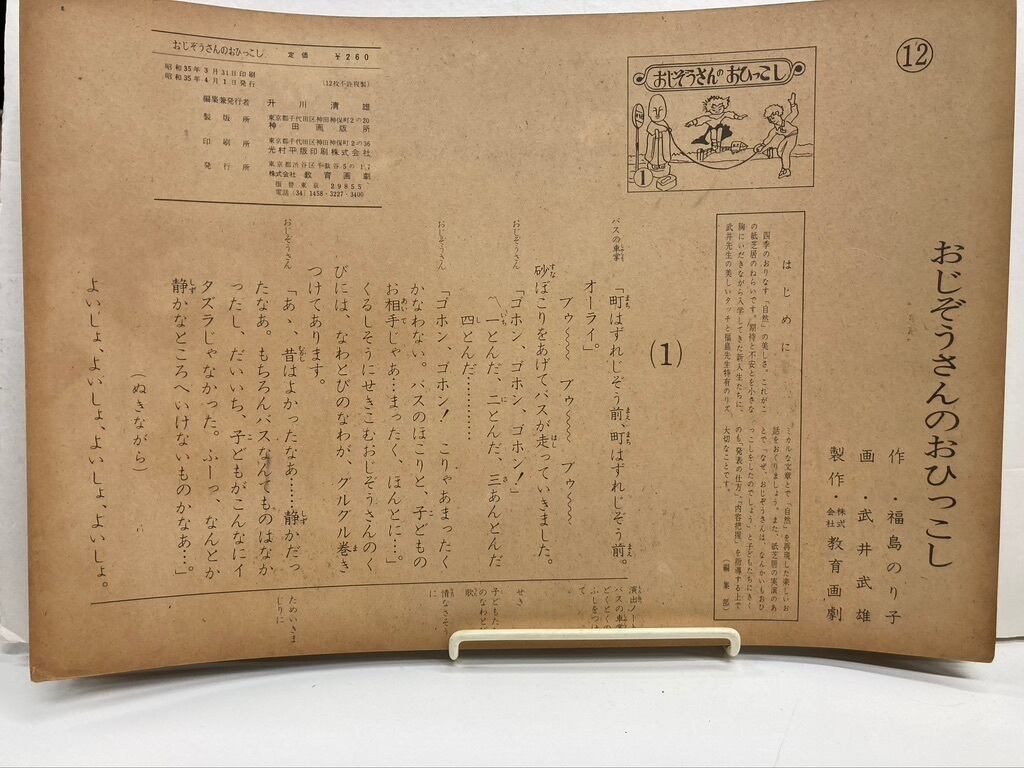 ⑫
おじぞうさんのおひっこし
作・福島のり子
画・武井武雄
製作・株式会社教育画劇
おじぞうさんのおひっこし
①
はじめに
四季のおりなす「自然」の美しさ。これがこ
の紙芝居のねらいです。期待と不安とを小さな
胸にいだきながら入学してきた新入生たちに、
武井先生の美しいタッチと福島先生特有のリズ
ミカルな文章とで「自然」を再現した楽しいお
話をおくりましょう。また、紙芝居の実演のあ
とで「なぜ、おじぞうさんは、なんかいもおひ
っこしをしたのでしょう」と子どもたちにきく
のも、「発表の仕方」「内容把握」を指導する上で
大切なことです。
（編集部）
(1)
バスの車掌
「町はずれじぞう前、町はずれじぞう前。
オーライ」
ブゥ〜〜〜 ブゥ〜〜〜 ブゥ〜〜〜
砂ぼこりをあげてバスが走っていきました。
おじぞうさん
「ゴホン、ゴホン、ゴホン！」
〽一とんだ、二とんだ、三あんとんだ
四とんだ…………
おじぞうさん
「ゴホン、ゴホン！ こりゃあまったく
かなわない。バスのほこりと、子どもの
お相手じゃあ…まったく、ほんとに…。」
くるしそうにせきこむおじぞうさんのく
びには、なわとびのなわが、グルグル巻き
つけてあります。
おじぞうさん
「あゝ、昔はよかったなあ……静かだっ
たなあ。もちろんバスなんてものはなか
ったし、だいいち、子どもがこんなにイ
タズラじゃなかった。ふーっ、なんとか
静かなところへいけないものかなあ…。」
（ぬきながら）
よいしょ、よいしょ、よいしょ、よいしょ。
演出ノート
バスの車掌
どくとくの
ふしをつけ
て
せき
子どもた
のなわと
歌
情なさそう
に
ためいきま
じりに
おじぞうさんのおひっこし 定価 ￥260
昭和35年3月31日印刷
昭和35年4月1日発行 (12枚不許複製)
編集兼発行者 升川清雄
製版所 東京都千代田区神田神保町2の20
神田画版所
印刷所 東京都千代田区神田神保町2の36
光村平版印刷株式会社
発行所 東京都渋谷区千駄谷5の17
株式会社 教育画劇
振替東京 29855
電話(34)1458・3227・3400